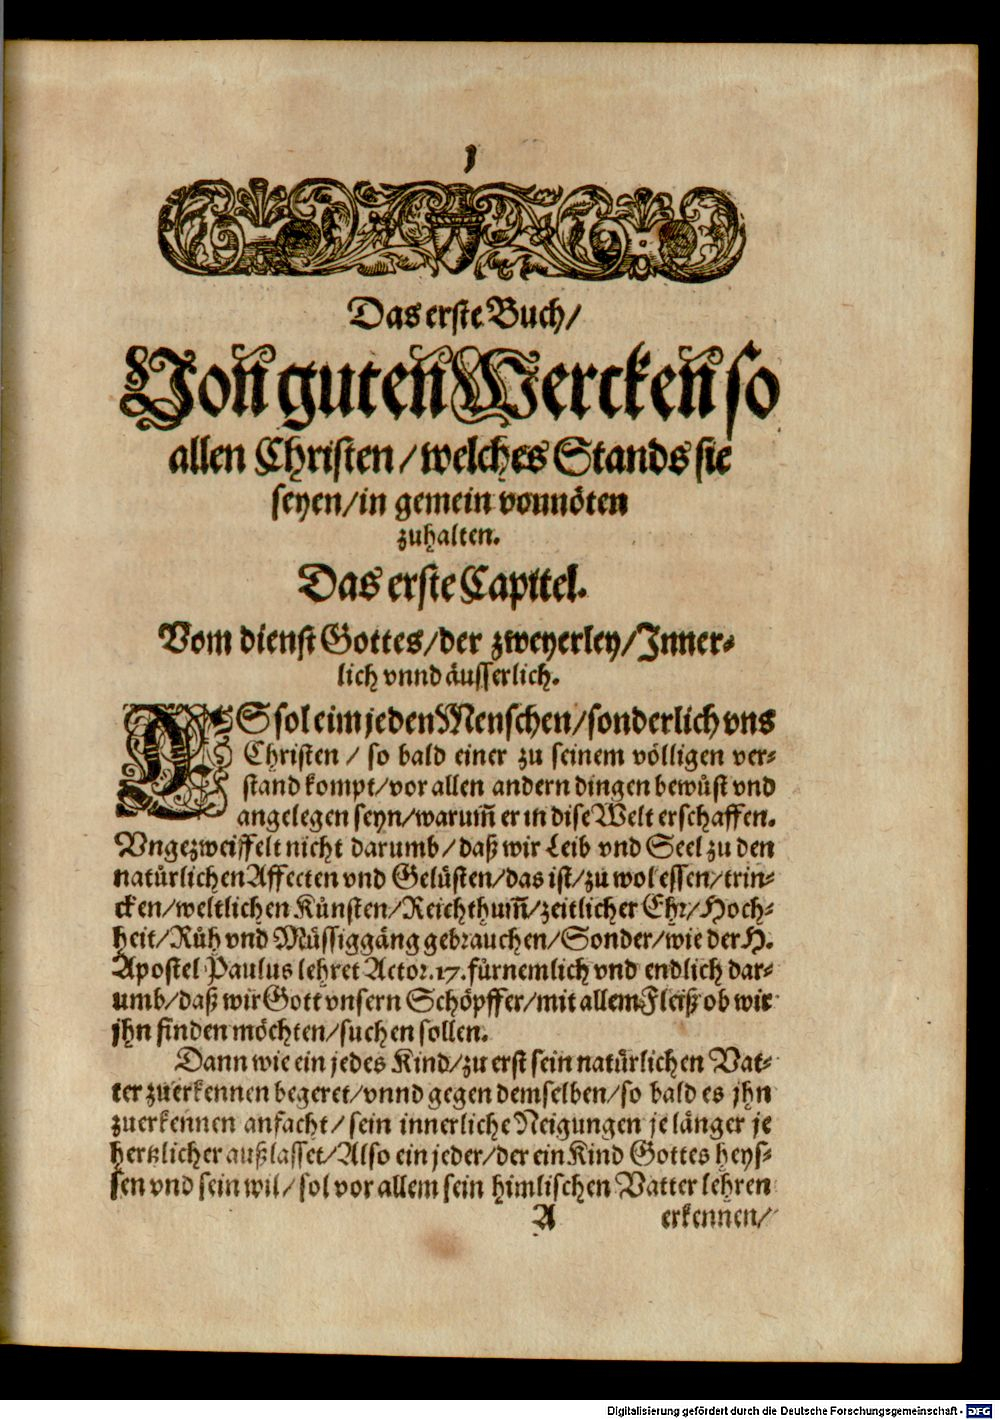 1
Das erste Buch/
Von guten Wercken so
allen Christen/welches Stands sie
seyen/in gemein vonnöten
zuhalten.
Das erste Capittel.
Vom dienst Gottes/der zweyerley/Inner-
lich vnnd äusserlich.
ES sol eim jeden Menschen/sonderlich vns
Christen / so bald einer zu seinem völligen ver-
stand kompt/vor allen andern dingen bewüst vnd
angelegen seyn/warum̃ er in dise Welt erschaffen.
Vngezweiffelt nicht darumb/daß wir Leib vnd Seel zu den
natürlichen Affecten vnd Gelüsten/das ist/zu wol essen/trin-
cken/weltlichen Künsten/Reichthum̃/zeitlicher Ehr/Hoch-
heit/Rüh vnd Müssiggäng gebrauchen/Sonder/wie der H.
Apostel Paulus lehret Actor.17.fürnemlich vnd endlich dar-
umb/daß wir Gott vnsern Schöpffer/mit allem Fleiß ob wir
jhn finden möchten/suchen sollen.
Dann wie ein jedes Kind/zu erst sein natürlichen Vat-
ter zuerkennen begeret/vnnd gegen demselben/so bald es jhn
zuerkennen anfacht/sein innerliche Neigungen je länger je
hertzlicher außlasset/Also ein jeder/der ein Kind Gottes heys-
sen vnd sein wil/sol vor allem sein himlischen Vatter lehren
A erkennen/
Digitalisierung gefördert durch die Deutsche Forschungsgemeinschaft - DFG